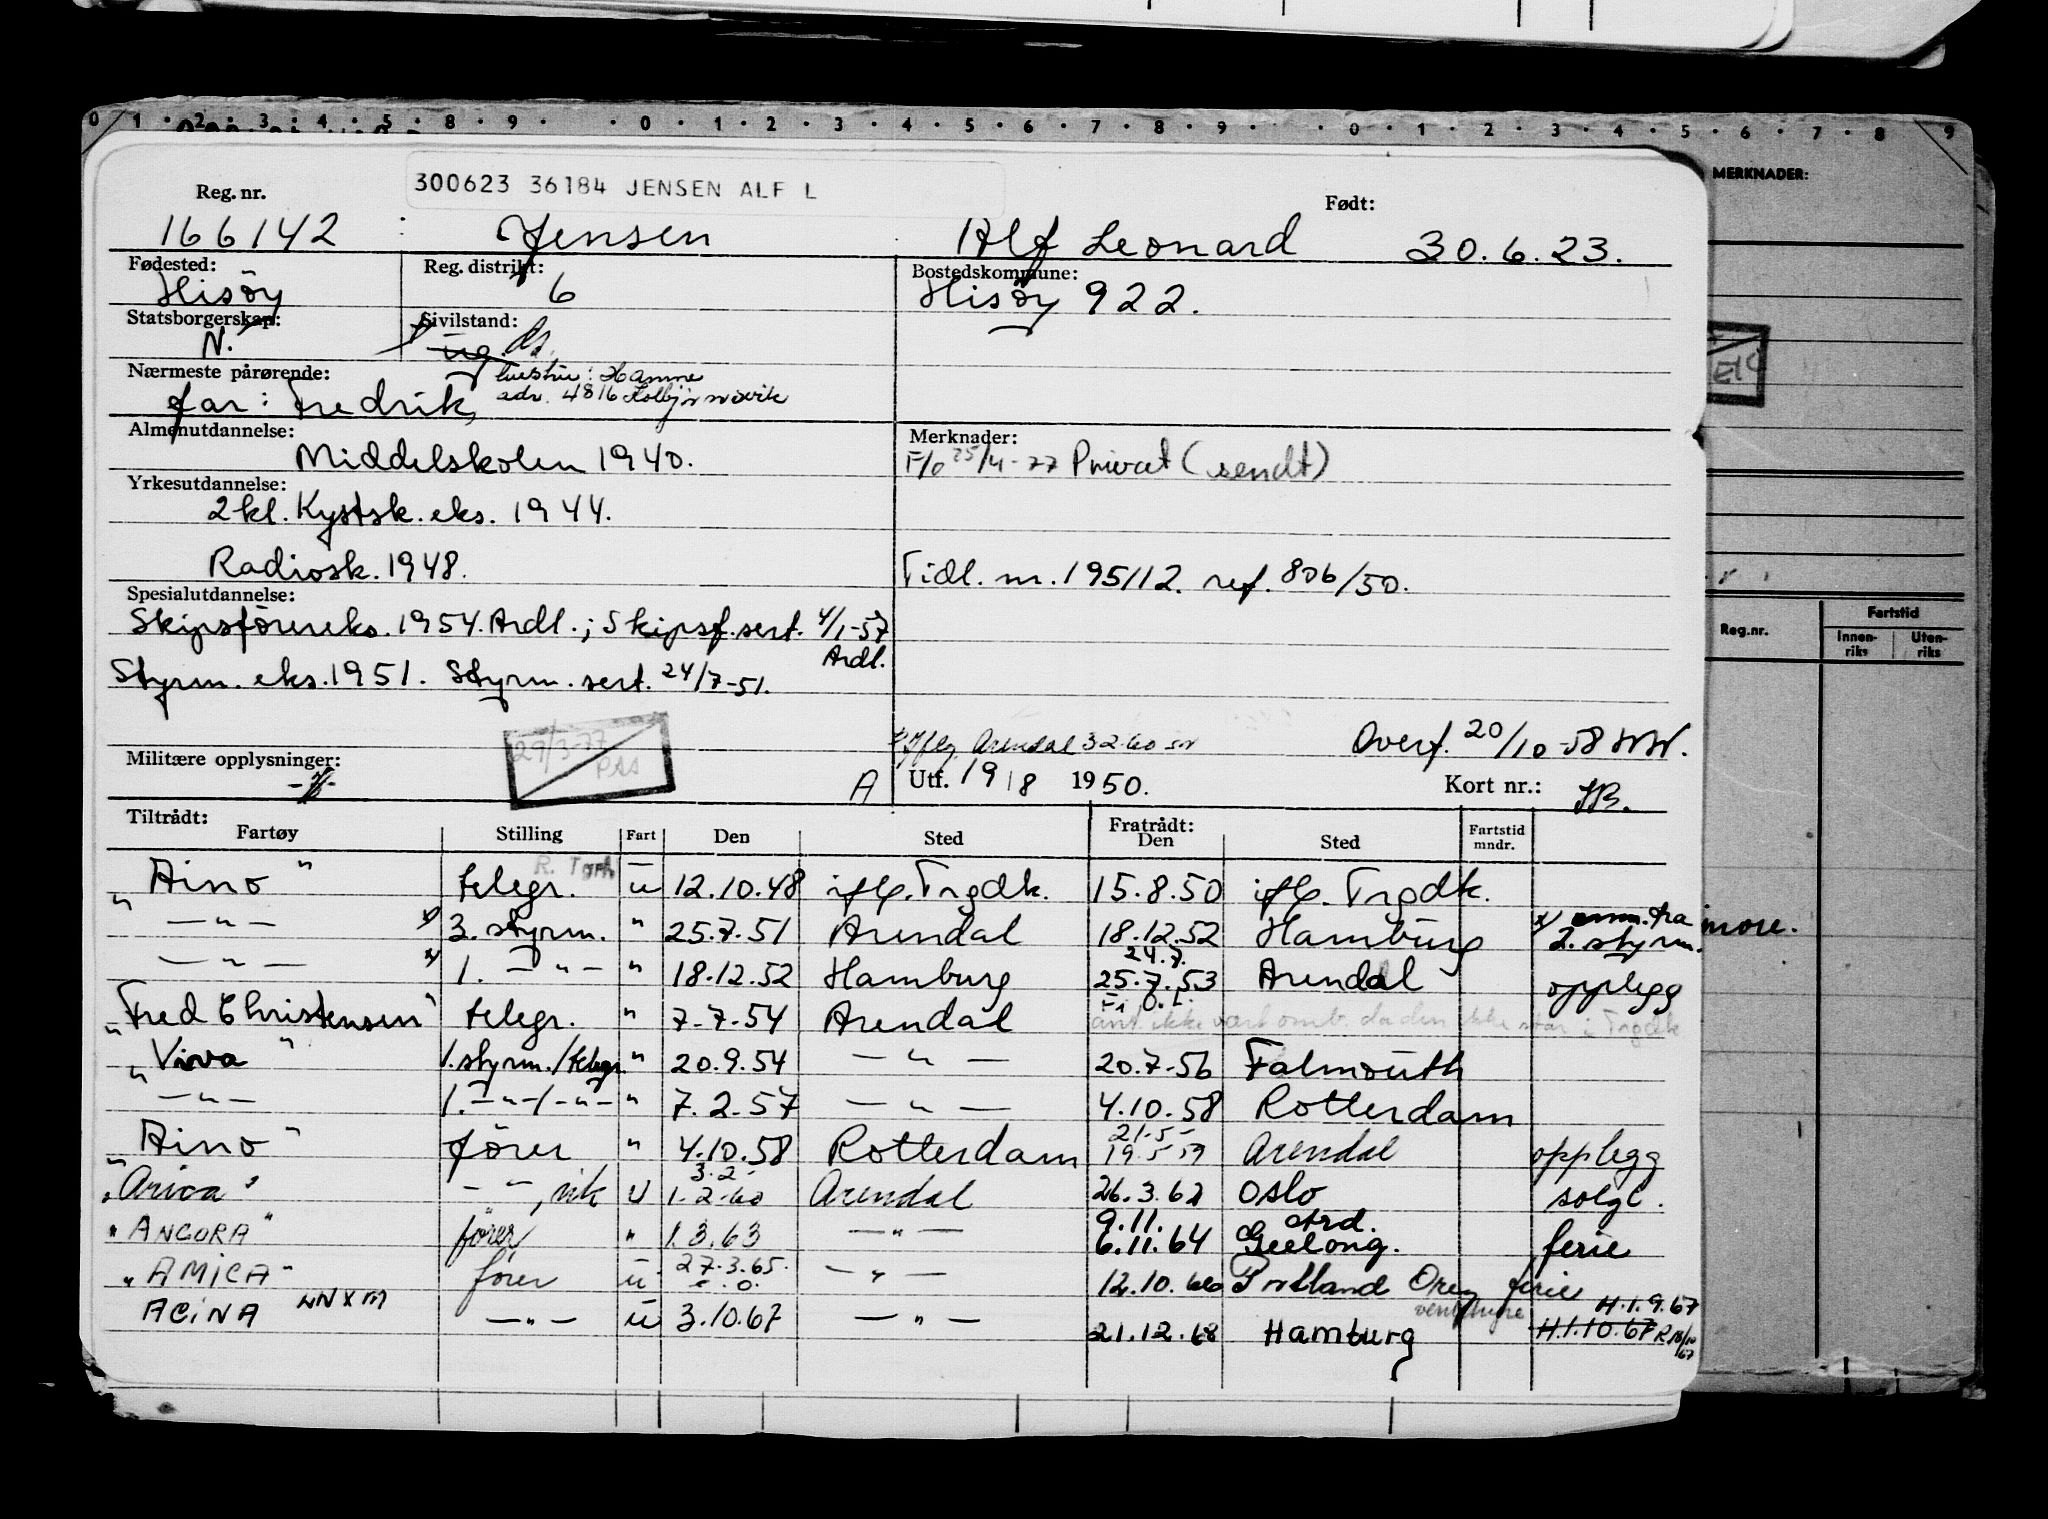 0 1 2 3 4 5 8 9 0 1 2 3 4 5 6 7 8 9 0 1 2 3 4 5 6 7 8 9
MERKNADER:
300623 36184 JENSEN ALF L
Reg. nr. Født:
166142 Jensen Alf Leonard 30.6.23.
Fødested: Reg. distrikt: Bostedskommune:
Hisøy 6 Hisøy 922.
Statsborgerskap: Sivilstand:
N. ug.
Nærmeste pårørende: hustru: Hanne
far: Fredrik, adr. 4816 Kolbjørnsvik
Almenutdannelse: Merknader:
Middelskolen 1940. F/o 25/4-77 Privat (sendt)
Yrkesutdannelse:
2kl. Kystsk. eks. 1944.
Radiosk. 1948. Tidl. nr. 195112. ref. 806/50.
Spesialutdannelse:
Skipsførereks. 1954. Ardl.; Skipsf. sert. 4/1-57
Ardl.
Styrm. eks. 1951. Styrm. sert. 24/7-51.
29/3-77
Arendal 3 2-60 Overf. 20/10-58
Militære opplysninger: A Utf. 19/8 1950. Kort nr.:
Reg.nr. Fartstid
Innen-riks Uten-riks
Tiltrådt: Fratrådt:
Fartøy Stilling Fart Den Sted Den Sted Fartstid mndr.
"Aino" telegr. u 12.10.48 Trgdk. 15.8.50 Trgdk.
— " — x) 3. styrm. " 25.7.51 Arendal 18.12.52 Hamburg x) fra
2. styrm.
— " — x) 1. — " — " 18.12.52 Hamburg 24.7. 25.7.53 Arendal opplegg
"Fred Christensen" telegr. " 7.7.54 Arendal ikke vært omb. da den ikke var i Trgdk
"Viva" 1. styrm./telegr. " 20.9.54 — " — 20.7.56 Falmouth
— " — 1. — " — / — " — " 7.2.57 — " — 4.10.58 Rotterdam
"Aino" fører " 4.10.58 Rotterdam 21.5- 19.5.59 Arendal opplegg
"Arica" — " —, vik U 3.2- 1.2-60 Arendal 26.3.62 Oslo solgt.
"ANCORA" fører " 1.3.63 — " — 9.11. 6.11.64 Ard. Geelong. ferie
"AMICA" fører u 27.3.65. — " — 12.10.66 Portland Oreg ferie
ACINA LNXM — " — u 3.10.67 — " — 21.12.68 Hamburg H.1.9.67
H.1.10.67 R 18/10 67